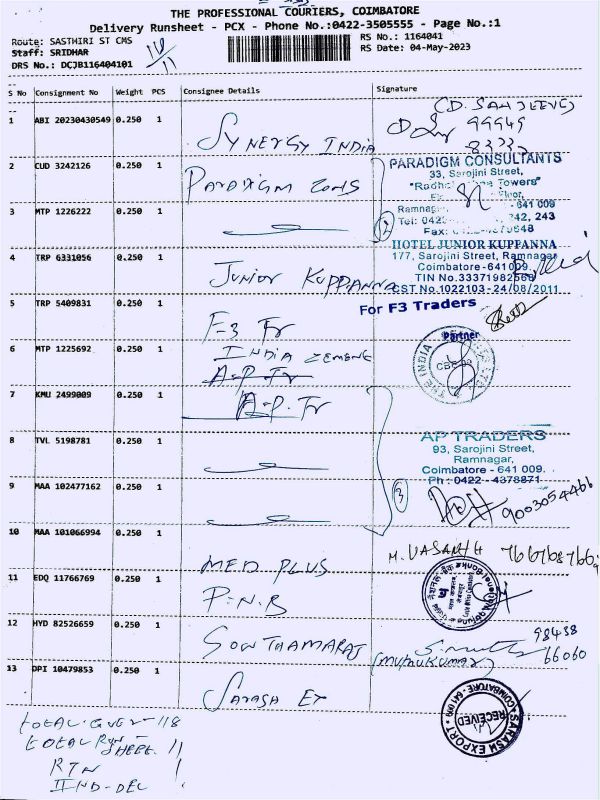 THE PROFESSIONAL COURIERS, COIMBATORE
Delivery Runsheet - PCX - Phone No.:0422-3505555 - Page No.:1
Route: SASTHIRI ST CMS
RS No.: 1164041
Staff: SRIDHAR
RS Date: 04-May-2023
DRS No.: DCJB116404101
S No Consignment No Weight PCS Consignee Details Signature
(D. SANJEEVE)
1 ABI 20230430549 0.250 1 SYNERGY INDIA 99949
2 CUD 3242126 0.250 1 PARADIGM CONS
PARADIGM CONSULTANTS
33, Sarojini Street,
Towers"
Ramnagar, - 641 009
Tel: 0422 242, 243
Fax:
3 MTP 1226222 0.250 1
12
4 TRP 6331056 0.250 1 JUNIOR KUPPANNA
HOTEL JUNIOR KUPPANNA
177, Sarojini Street, Ramnagar
Coimbatore-641009.
TIN No.33371982568
CST No.1022103 - 24/08/2011
5 TRP 5409831 0.250 1 F-3 Tr
For F3 Traders
Partner
6 MTP 1225692 0.250 1 INDIA CEMENE
THE INDIA
A-P-Tr
7 KMU 2499009 0.250 1 A-P-Tr
8 TVL 5198781 0.250 1
AP TRADERS
93, Sarojini Street,
Ramnagar,
Coimbatore - 641 009.
Ph : 0422 - 4378871
9 MAA 102477162 0.250 1
3
9003054466
10 MAA 101066994 0.250 1 MED PLUS M. VASANTH
11 EDQ 11766769 0.250 1 P.N.B
12 HYD 82526659 0.250 1 SOWTHAMARAJ (MUTHUKUMAR) 98438
66060
13 DPI 10479853 0.250 1 SARASH EX
SARASH EXPORT
RECEIVED
COIMBATORE - 641 009
TOTAL-GVER-118
TOTAL RUN-
SHEET 11
RTN 1
IIND-DEL 1